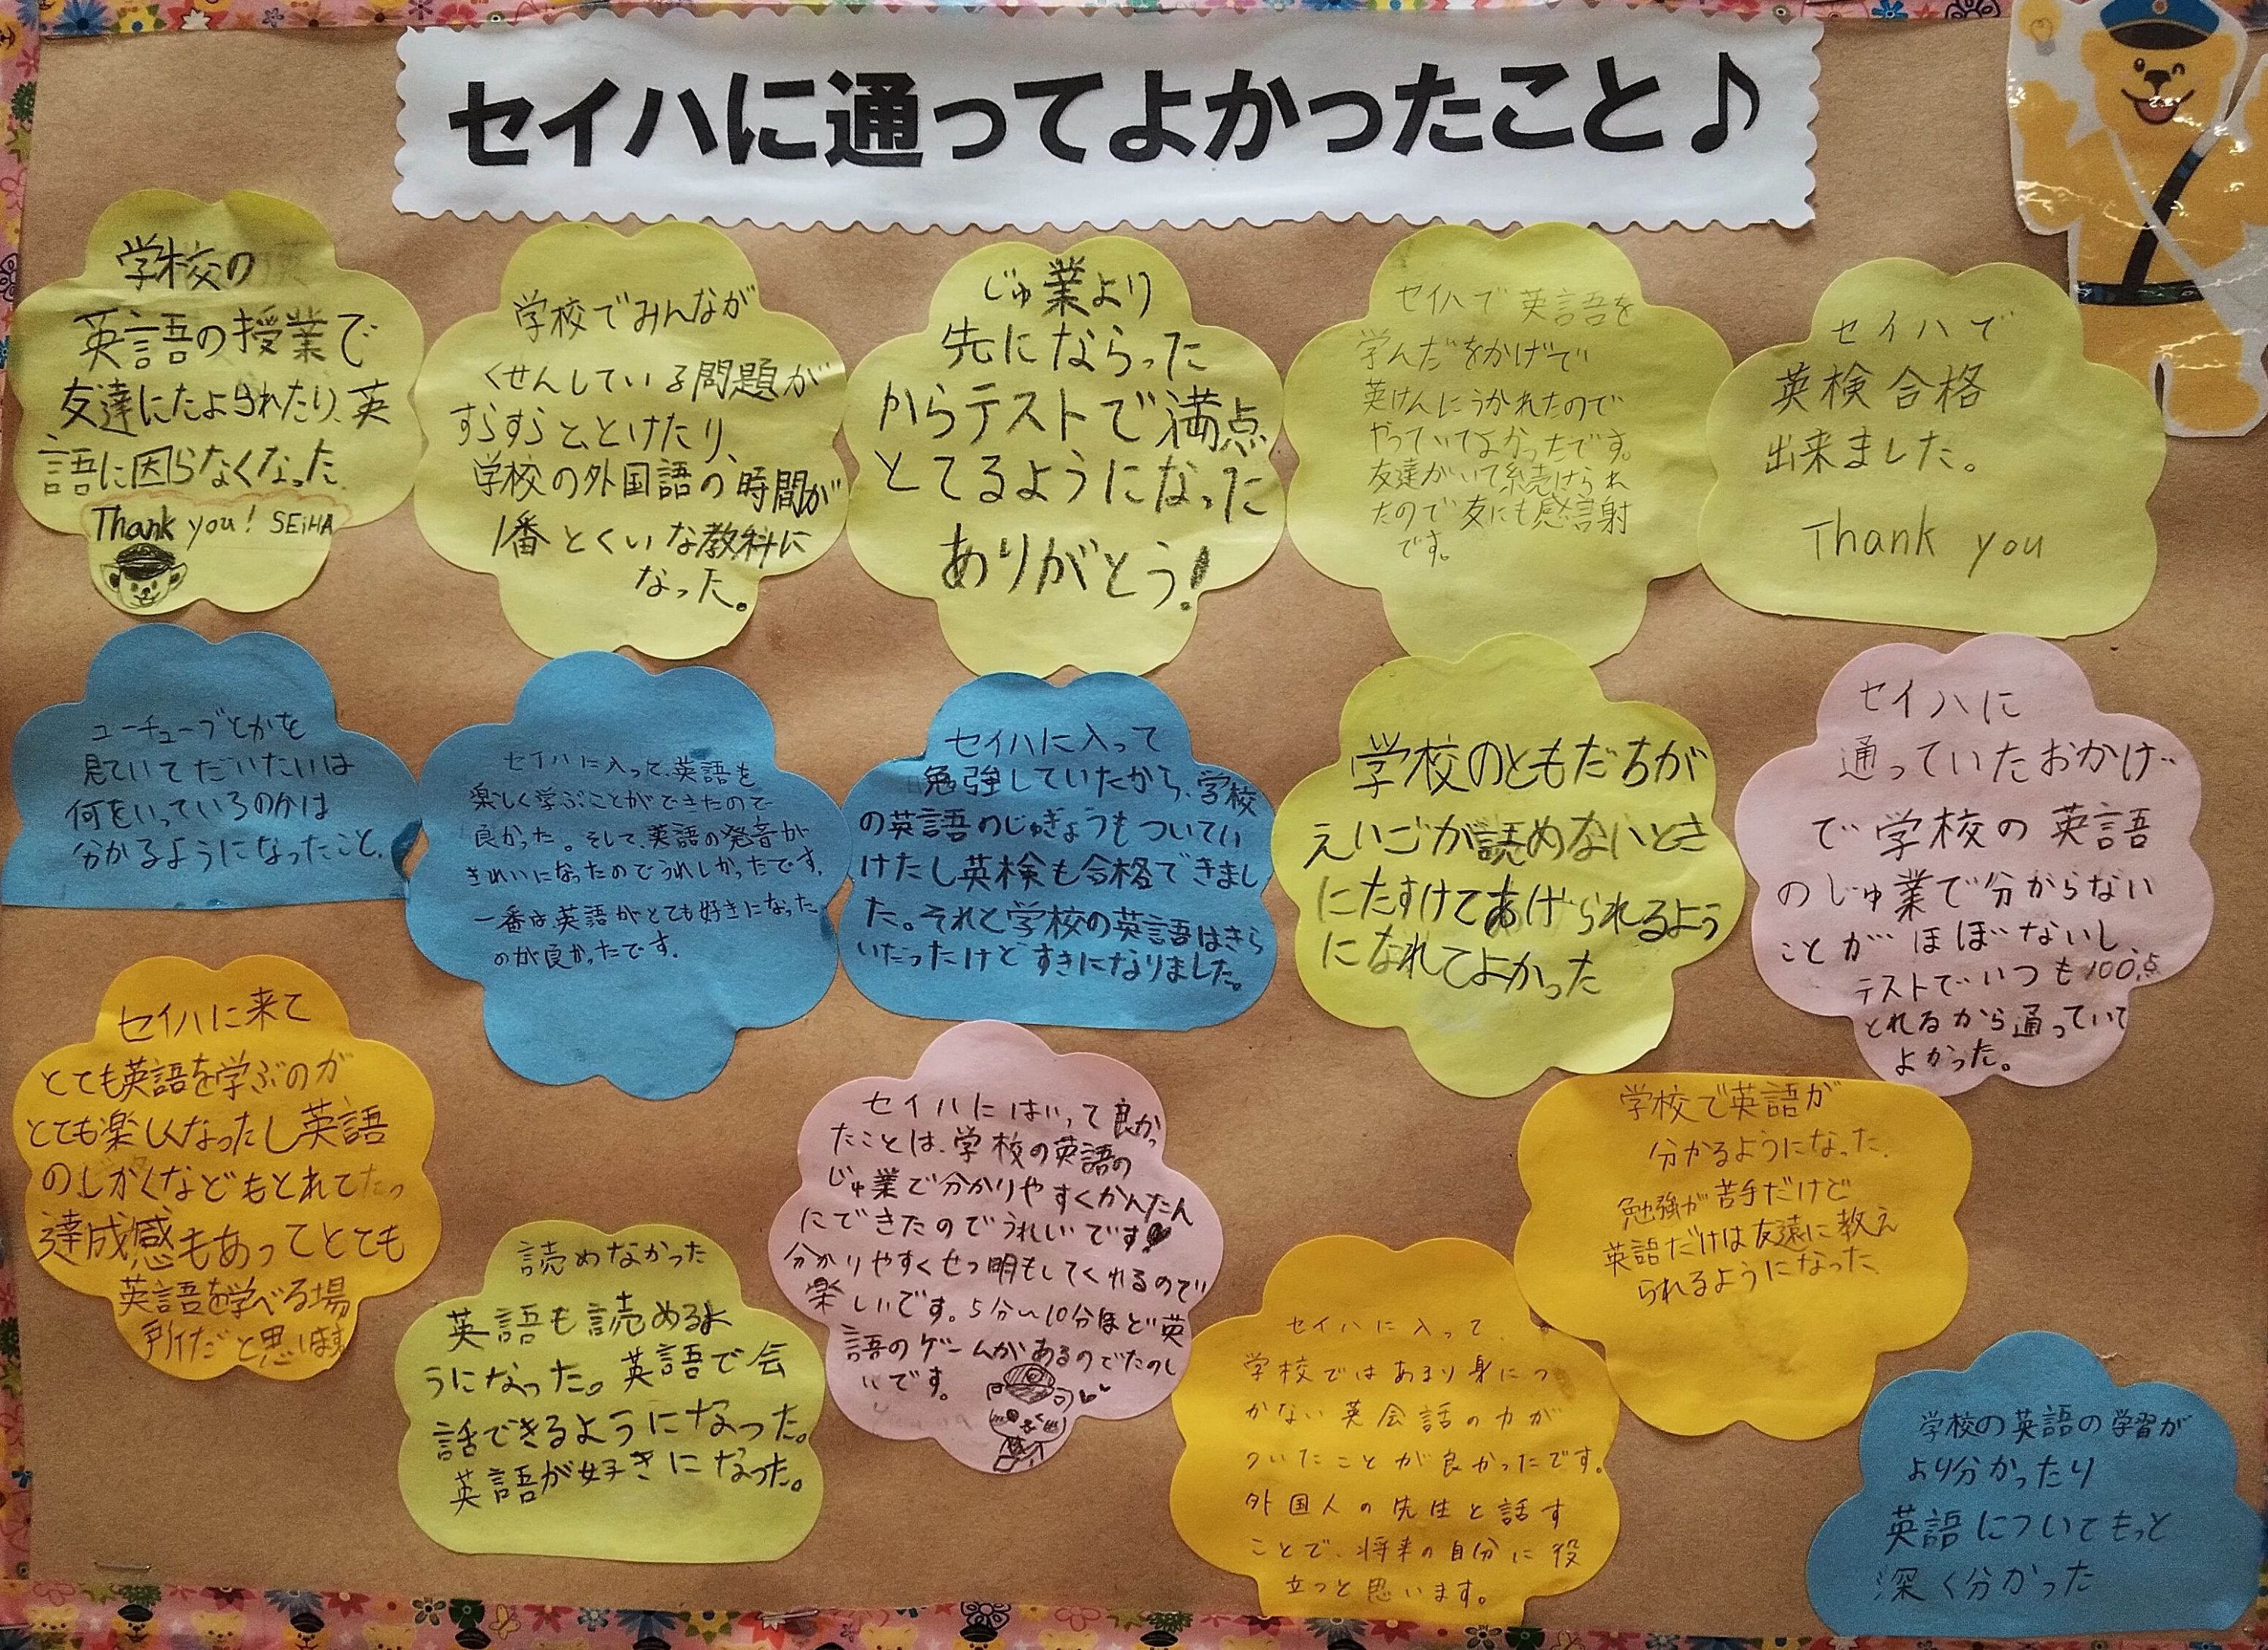 セイハに通ってよかったこと♪
学校の
英語の授業で
友達にたよられたり、英
語に困らなくなった.
Thank you! SEiHA
学校でみんなが
くせんしている問題が
すらすらと、とけたり、
学校の外国語の時間が
1番とくいな教科に
なった。
じゅ業より
先にならった
からテストで満点
とてるようになった
ありがとう!
セイハで英語を
学んだをかげで
英けんにうかれたので
やっていてよかったです。
友達がいて続けられ
たので友にも感謝
です。
セイハで
英検合格
出来ました。
Thank you
ユーチューブとかを
見ていてだいたいは
何をいっているのかは
分かるようになったこと.
セイハに入って、英語を
楽しく学ぶことができたので
良かった。そして、英語の発音が
きれいになったのでうれしかったです.
一番は、英語がとても好きになった
のが良かったです。
セイハに入って
勉強していたから、学校
の英語のじゅぎょうもついてい
けたし英検も合格できまし
た。それと学校の英語はきら
いだったけどすきになりました。
学校のともだちが
えいごが読めないとき
にたすけてあげられるよう
になれてよかった
セイハに
通っていたおかげ
で学校の英語
のじゅ業で分からない
ことがほぼないし、
テストでいつも100点
とれるから通っていて
よかった。
セイハに来て
とても英語を学ぶのが
とても楽しくなったし英語
のしかくなどもとれて
達成感もあってとても
英語を学べる場
所だと思います
読めなかった
英語も読めるよ
うになった。英語で会
話できるようになった。
英語が好きになった。
セイハにはいって良かっ
たことは、学校の英語の
じゅ業で分かりやすくかんたん
にできたのでうれしいです!
分かりやすくせつ明もしてくれるので
楽しいです。5分〜10分ほど英
語のゲームがあるのでたのし
いです。
学校で英語が
分かるようになった.
勉強が苦手だけど
英語だけは友達に教え
られるようになった
セイハに入って、
学校ではあまり身につ
かない英会話の力が
ついたことが良かったです。
外国人の先生と話す
ことで、将来の自分に役
立つと思います。
学校の英語の学習が
より分かったり
英語についてもっと
深く分かった